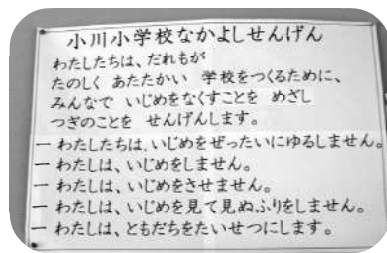 小川小学校なかよしせんげん
わたしたちは、だれもが
たのしく あたたかい 学校をつくるために、
みんなで いじめをなくすことを めざし
つぎのことを せんげんします。
一 わたしたちは、いじめをぜったいにゆるしません。
一 わたしは、いじめをしません。
一 わたしは、いじめをさせません。
一 わたしは、いじめを見て見ぬふりをしません。
一 わたしは、ともだちをたいせつにします。